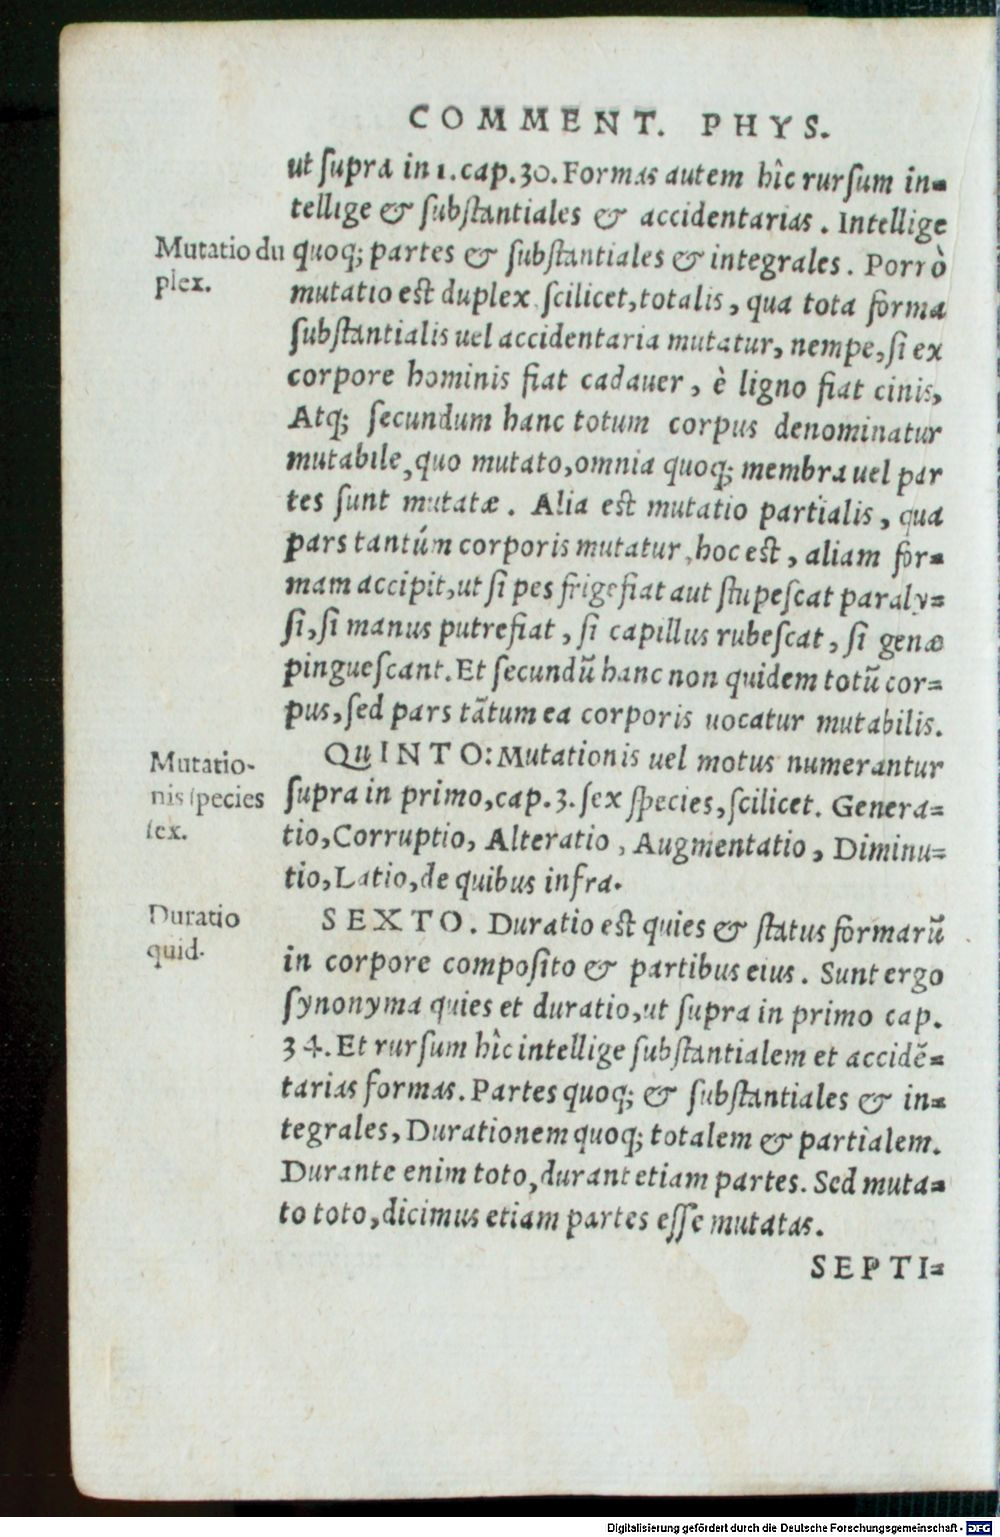 COMMENT. PHYS.
ut ſupra in 1. cap. 30. Formas autem hîc rurſum in=
tellige & ſubſtantiales & accidentarias. Intellige
Mutatio du
plex.
quoq; partes & ſubſtantiales & integrales. Porrò
mutatio est duplex scilicet, totalis, qua tota forma
ſubſtantialis uel accidentaria mutatur, nempe, ſi ex
corpore hominis fiat cadauer, è ligno fiat cinis,
Atq; ſecundum hanc totum corpus denominatur
mutabile, quo mutato, omnia quoq; membra uel par
tes ſunt mutatæ. Alia est mutatio partialis, qua
pars tantúm corporis mutatur, hoc est, aliam for=
mam accipit, ut ſi pes frigefiat aut ſtupeſcat paraly=
ſi, ſi manus putrefiat, ſi capillus rubeſcat, ſi genæ
pingueſcant. Et ſecundũ hanc non quidem totũ cor=
pus, ſed pars tãtum ea corporis uocatur mutabilis.
Mutatio-
nis ſpecies
ſex.
QuINTO: Mutationis uel motus numerantur
ſupra in primo, cap. 3. ſex ſpecies, ſcilicet. Genera=
tio, Corruptio, Alteratio, Augmentatio, Diminu=
tio, Latio, de quibus infra.
Duratio
quid.
SEXTO. Duratio est quies & ſtatus formarũ
in corpore compoſito & partibus eius. Sunt ergo
ſynonyma quies et duratio, ut ſupra in primo cap.
34. Et rurſum hîc intellige ſubſtantialem et accidẽ=
tarias formas. Partes quoq; & ſubſtantiales & in=
tegrales, Durationem quoq; totalem & partialem.
Durante enim toto, durant etiam partes. Sed muta=
to toto, dicimus etiam partes eſſe mutatas.
SEPTI=
Digitalisierung gefördert durch die Deutsche Forschungsgemeinschaft - DFG